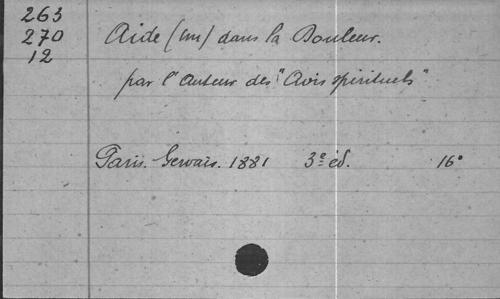 263
270
12
Aide (un) dans la Douleur.
par l'Auteur des "Avis spirituels"
Paris. Gervais. 1881 3e éd. 16°